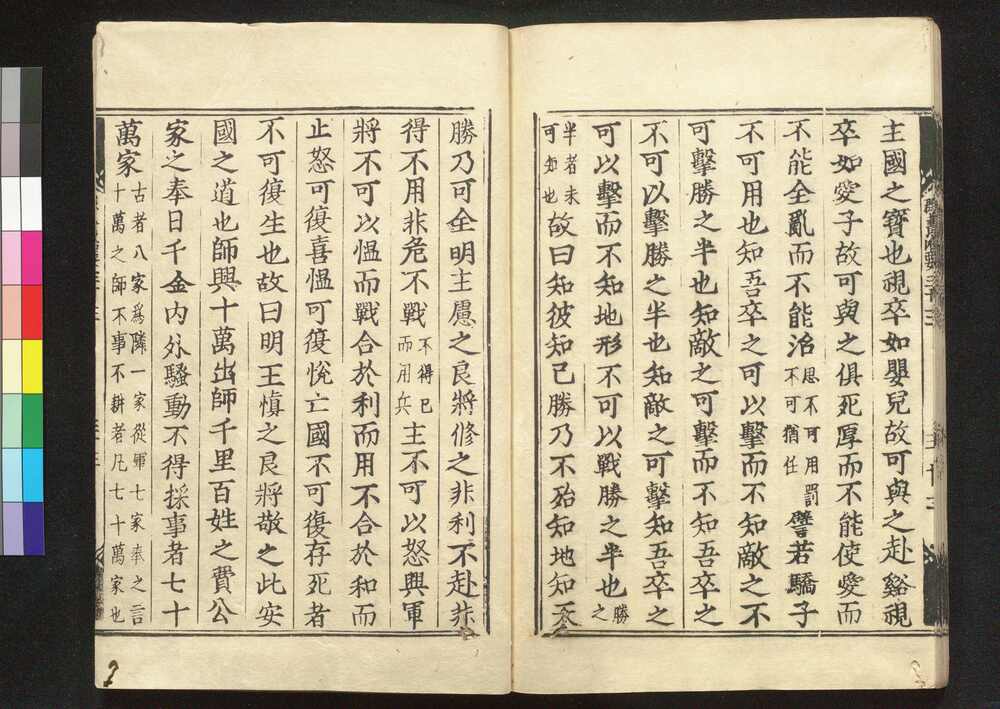 主國之寳也視卒如嬰兒故可與之赴谿視
卒如愛子故可與之俱死厚而不能使愛而
不能全亂而不能治思不可用罰不可猶任譬若驕子
不可用也知吾卒之可以擊而不知敵之不
可擊勝之半也知敵之可擊而不知吾卒之
不可以擊勝之半也知敵之可擊知吾卒之
可以擊而不知地形不可以戰勝之半也勝之
半者未可知也故曰知彼知己勝乃不殆知地知天
勝乃可全明主慮之良將修之非利不赴非
得不用非危不戰不得已而用兵主不可以怒興軍
將不可以愠而戰合於利而用不合於和而
止怒可復喜愠可復悅亡國不可復存死者
不可復生也故曰明王慎之良將敬之此安
國之道也師興十萬出師千里百姓之費公
家之奉日千金内外騷動不得採事者七十
萬家古者八家爲隣一家從軍七家奉之言十萬之師不事不耕者凡七十萬家也